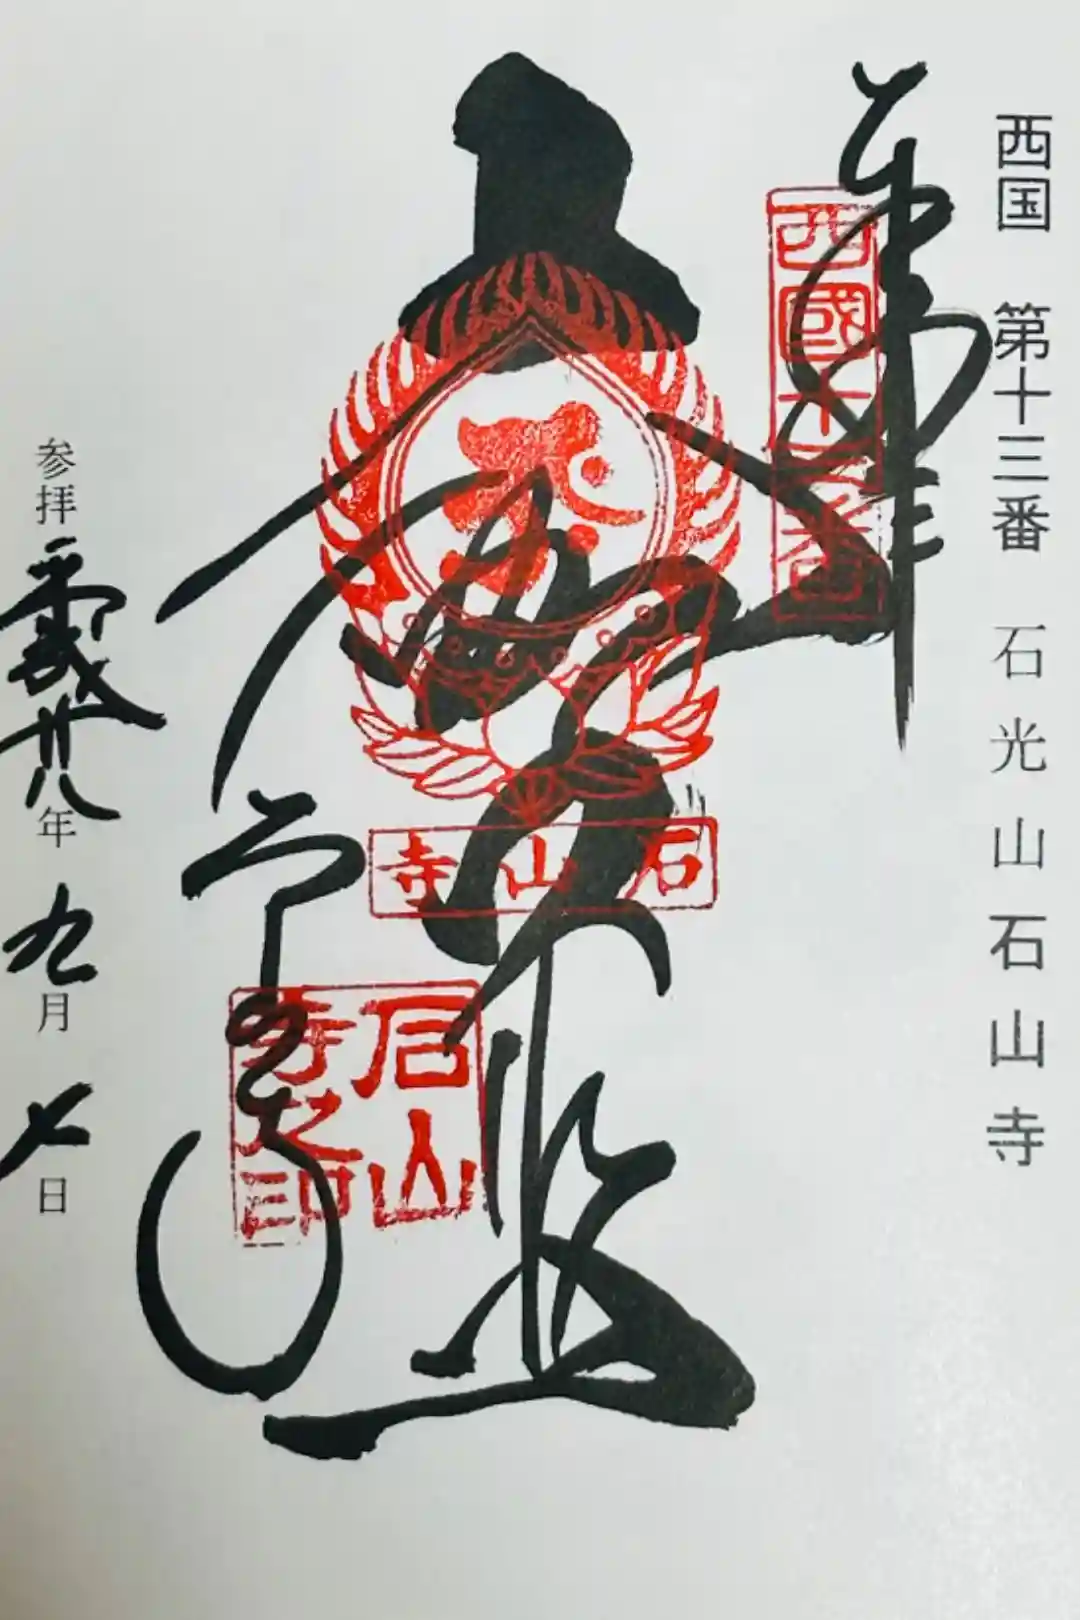 西国 第十三番 石光山石山寺
奉拝
西國十三番
大伽藍
石山寺
石山寺之印
参拝 平成廿八年 九月 七日